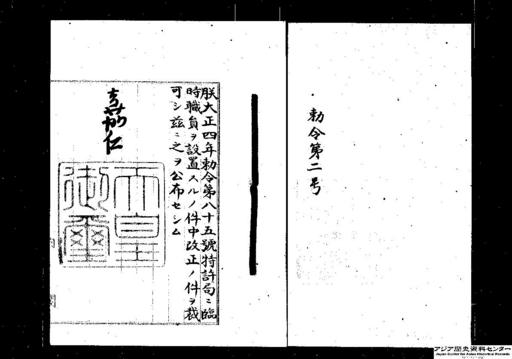 勅令第二号
朕大正四年勅令第八十五號特許局ニ臨
時職員ヲ設置スルノ件中改正ノ件ヲ裁
可シ茲ニ之ヲ公布セシム
嘉仁
天皇
御璽
アジア歴史資料センター
Japan Center for Asian Historical Records